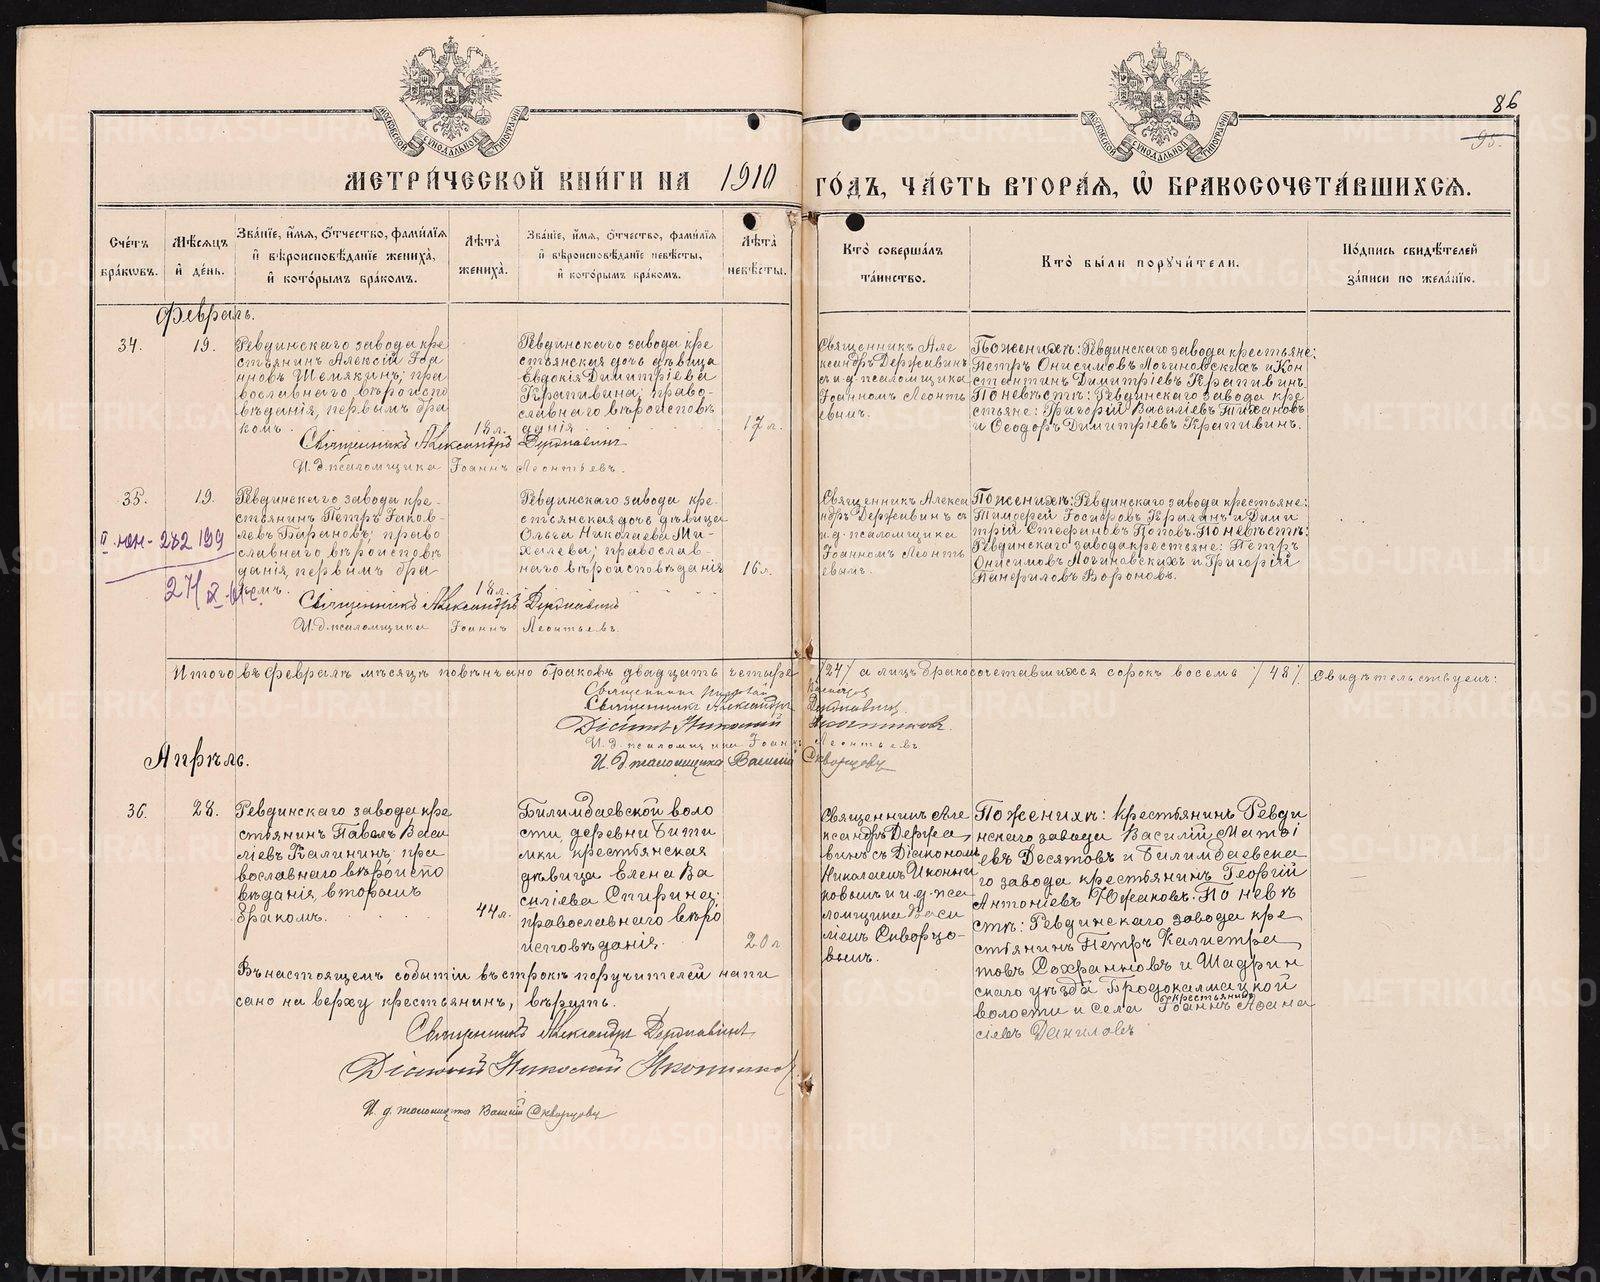 86
95.
МОСКОВСКОЙ СѴНОДАЛЬНОЙ ТИПОГРАФИИ
МОСКОВСКОЙ СѴНОДАЛЬНОЙ ТИПОГРАФИИ
МЕТРИ́ЧЕСКОЙ КНИ́ГИ НА 1910 ГО́ДЪ, ЧА́СТЬ ВТОРА́Ѧ, Ѡ БРАКОСОЧЕТА́ВШИХСѦ.
Сче́тъ бра́кωвъ.
Мѣ́сѧцъ и де́нь.
Зва́нїе, и́мѧ, ѻ́тчество, фами́лїѧ и вѣроисповѣ́данїе жениха̀, и кото́рымъ бра́комъ.
Лѣ́та жениха̀.
Зва́нїе, и́мѧ, ѻ́тчество, фами́лїѧ и вѣроисповѣ́данїе невѣ́сты, и кото́рымъ бра́комъ.
Лѣ́та невѣ́сты.
Кто̀ соверша́лъ та́инство.
Кто̀ бы́ли порꙋчи́тели.
По́дпись свидѣ́телей за́писи по жела́нїю.
Февраль.
34.
19.
Ревдинскаго завода кре
стьянинъ Алексiй Iоа
нновъ Шемякинъ; пра
вославнаго вѣроиспо
вѣданiя, первымъ бра
комъ.
18 л.
Ревдинскаго завода кре
стьянская дочь дѣвица
Евдокiя Димитрiева
Крапивина; право-
славнаго вѣроисповѣ
данiя
17 л.
Священникъ Але
ксандръ Державинъ
съ и. д. псаломщика
Iоанномъ Леонть
евымъ.
По женихѣ: Ревдинскаго завода крестьяне:
Петръ Онисимовъ Логиновскихъ и Кон
стантинъ Димитрiевъ Крапивинъ.
По невѣстѣ: Ревдинскаго завода кре
стьяне: Григорiй Василiевъ Тихановъ
и Ѳеодоръ Димитрiевъ Крапивинъ.
Священникъ Александръ Державинъ
И. д. псаломщика Iоаннъ Леонтьевъ.
35.
19.
Ревдинскаго завода кре-
стьянинъ Петръ Iаков-
левъ Барановъ; право
славнаго вѣроисповѣ
данiя, первымъ бра
комъ.
18 л.
Ревдинскаго завода кре-
стьянская дочь дѣвица
Ольга Николаева Ми-
халева; православ-
наго вѣроисповѣданiя
16 л.
Священникъ Алекса
ндръ Державинъ съ
и. д. псаломщика
Iоанномъ Леонть
евымъ.
По женихѣ: Ревдинскаго завода крестьяне:
Тимоѳей Iосифовъ Кралинъ и Дими
трiй Стефановъ Поповъ. По невѣстѣ:
Ревдинскаго завода крестьяне: Петръ
Онисимовъ Логиновскихъ и Григорiй
Панфиловъ Вороновъ.
282 199
271
Священникъ Александръ Державинъ
И. д. псаломщика Iоаннъ Леонтьевъ.
Итого въ февралѣ мѣсяцѣ повѣнчано браковъ двадцать четыре /24/ а лицъ бракосочетавшихся сорокъ восемь /48/ свидѣтельствуемъ:
Священникъ
Священникъ Александръ Державинъ.
Дiаконъ Николай Иконниковъ.
И. д. псаломщика Iоаннъ Леонтьевъ
И. д. псаломщика Василiй Скворцовъ
Апрѣль.
36.
28.
Ревдинскаго завода кре
стьянинъ Павелъ Васи
лiевъ Калининъ; пра
вославнаго вѣроиспо
вѣданiя, вторымъ
бракомъ.
44 л.
Билимбаевской воло
сти деревни Бити
мки крестьянская
дѣвица Елена Ва
силiева Спирина;
православнаго вѣро
исповѣданiя.
20 л
Священникъ Але
ксандръ Держа
винъ съ Дiакономъ
Николаемъ Иконни
ковымъ и и. д. пса
ломщика Васи
лiемъ Скворцо-
вымъ.
По женихѣ: крестьянинъ Ревди
нскаго завода Василiй Матѳi
евъ Десятовъ и Билимбаевска
го завода крестьянинъ Георгiй
Антонiевъ Южаковъ. По невѣ
стѣ: Ревдинскаго завода кре
стьянинъ Петръ Калистра
товъ Сохранновъ и Шадрин
скаго уѣзда Бродокалмацкой
волости и села крестьянинъ Iоаннъ Аѳана
сiевъ Даниловъ
Въ настоящемъ событiи въ строкѣ поручителей напи
сано на верху крестьянинъ, вѣрить.
Священникъ Александръ Державинъ
Дiаконъ Николай Иконниковъ
И. д. псаломщика Василiй Скворцовъ
METRIKI.GASO-URAL.RU